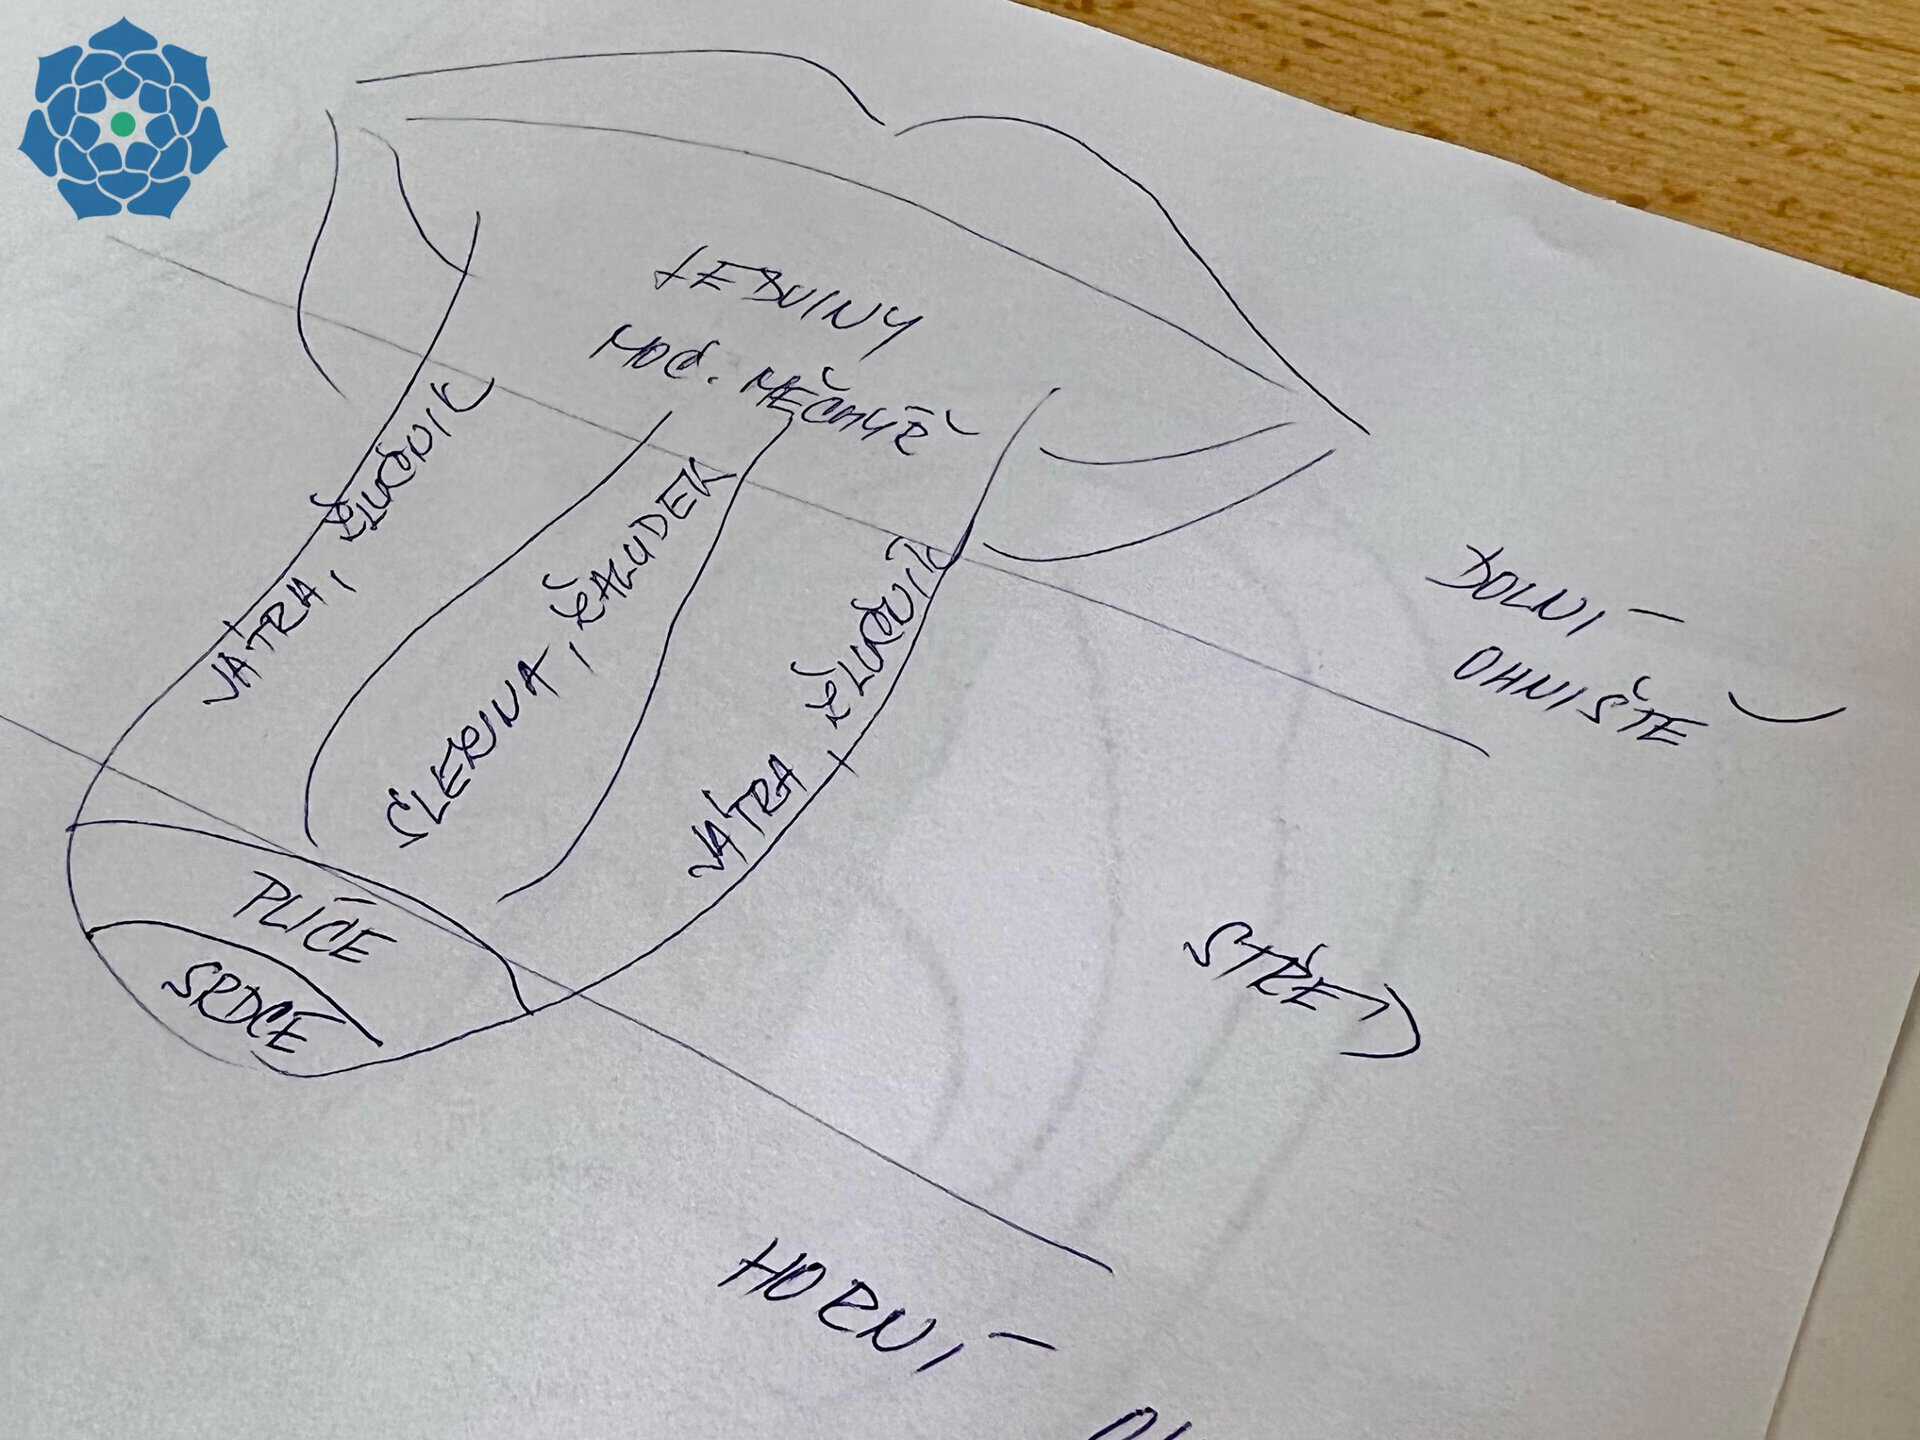 LEDVINY
MOČ. MĚCHÝŘ
JÁTRA, ŽLUČNÍK
SLEZINA, ŽALUDEK
JÁTRA, ŽLUČNÍK
PLÍCE
SRDCE
DOLNÍ
OHNIŠTĚ
STŘED
HORNÍ